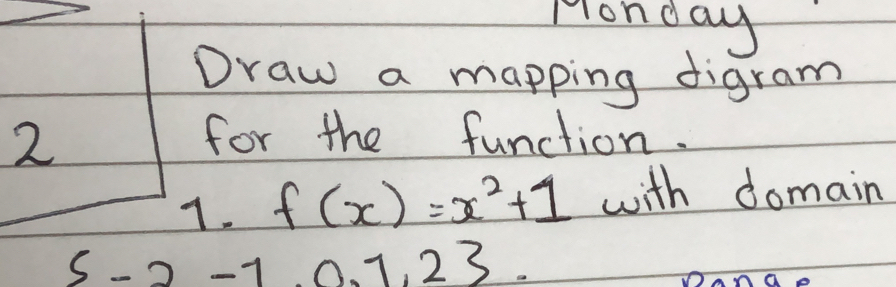 Monday
Draw a mapping digram
2 for the function.
1. f(x)=x²+1 with domain
{-2 -1, 0, 1, 2}.
Range